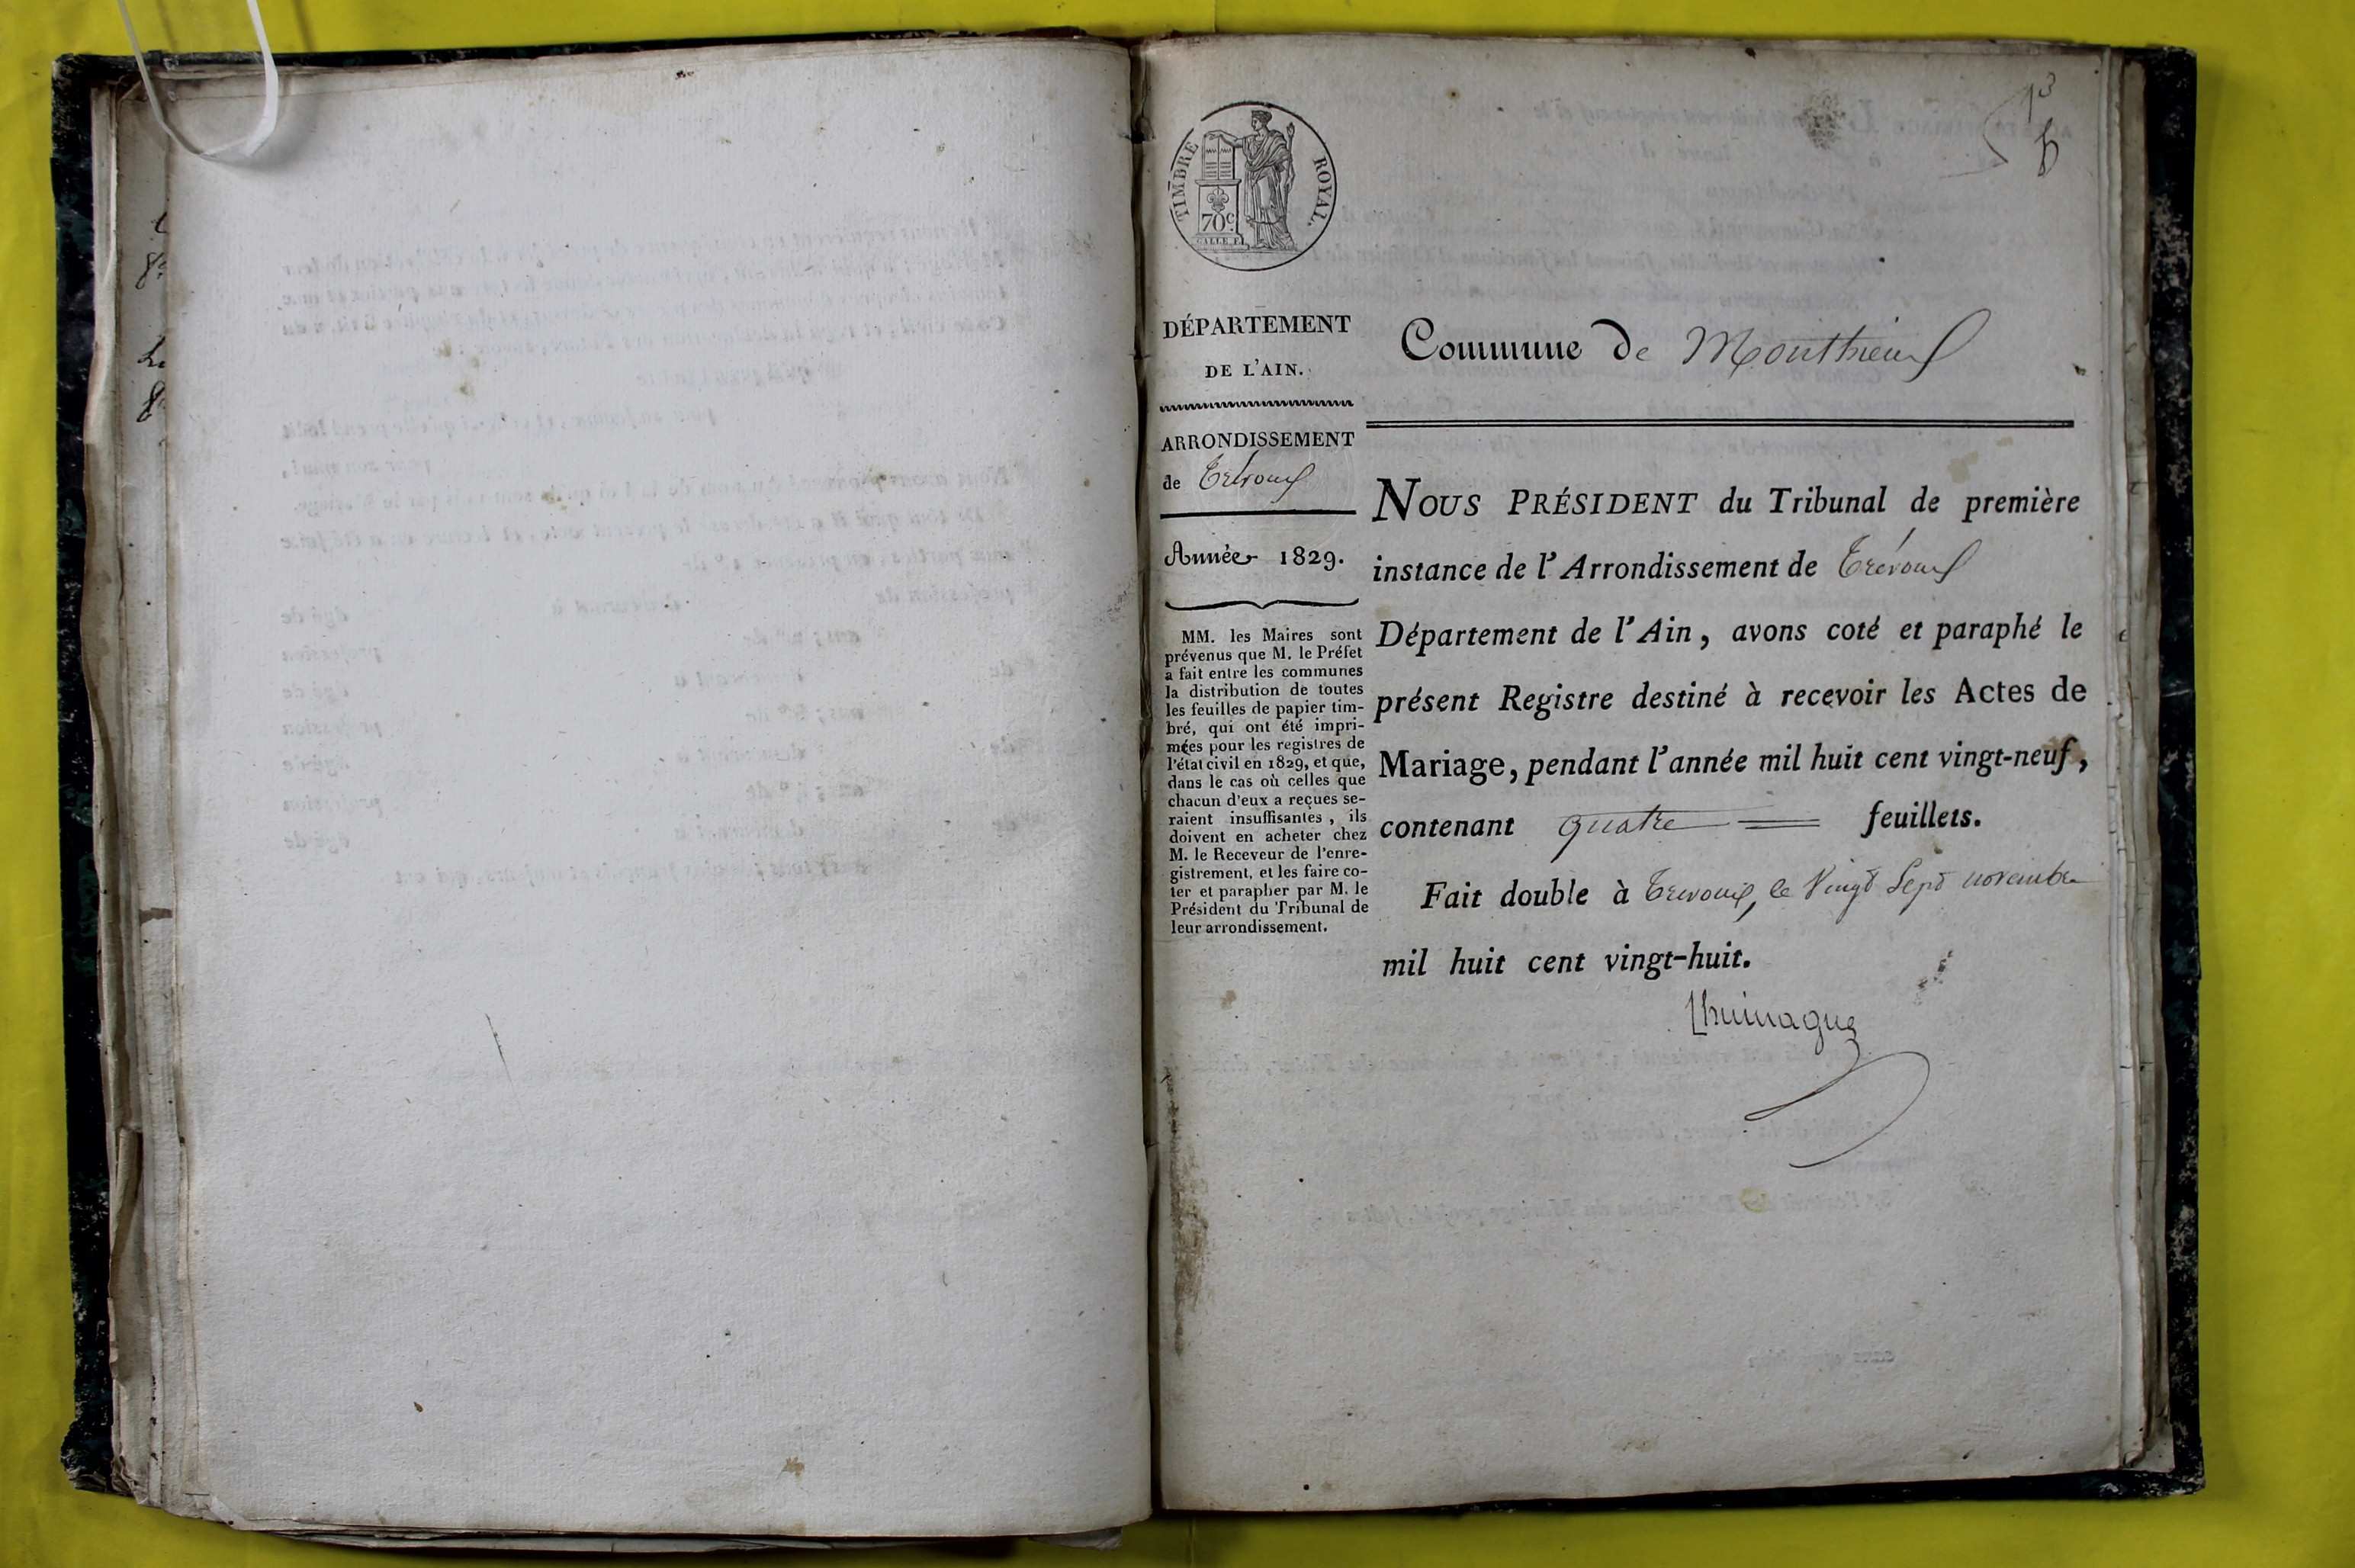 TIMBRE ROYAL.
70c.
DÉPARTEMENT
DE L'AIN.
ARRONDISSEMENT
de Trévoux
Année 1829.
MM. les Maires sont
prévenus que M. le Préfet
a fait entre les communes
la distribution de toutes
les feuilles de papier tim-
bré, qui ont été impri-
mées pour les registres de
l'état civil en 1829, et que,
dans le cas où celles que
chacun d'eux a reçues se-
raient insuffisantes, ils
doivent en acheter chez
M. le Receveur de l'enre-
gistrement, et les faire co-
ter et parapher par M. le
Président du Tribunal de
leur arrondissement.
Commune de Monthieux
NOUS PRÉSIDENT du Tribunal de première
instance de l'Arrondissement de Trévoux
Département de l'Ain, avons coté et paraphé le
présent Registre destiné à recevoir les Actes de
Mariage, pendant l'année mil huit cent vingt-neuf,
contenant quatre feuillets.
Fait double à Trevoux, le Vingt Sept novembre
mil huit cent vingt-huit.